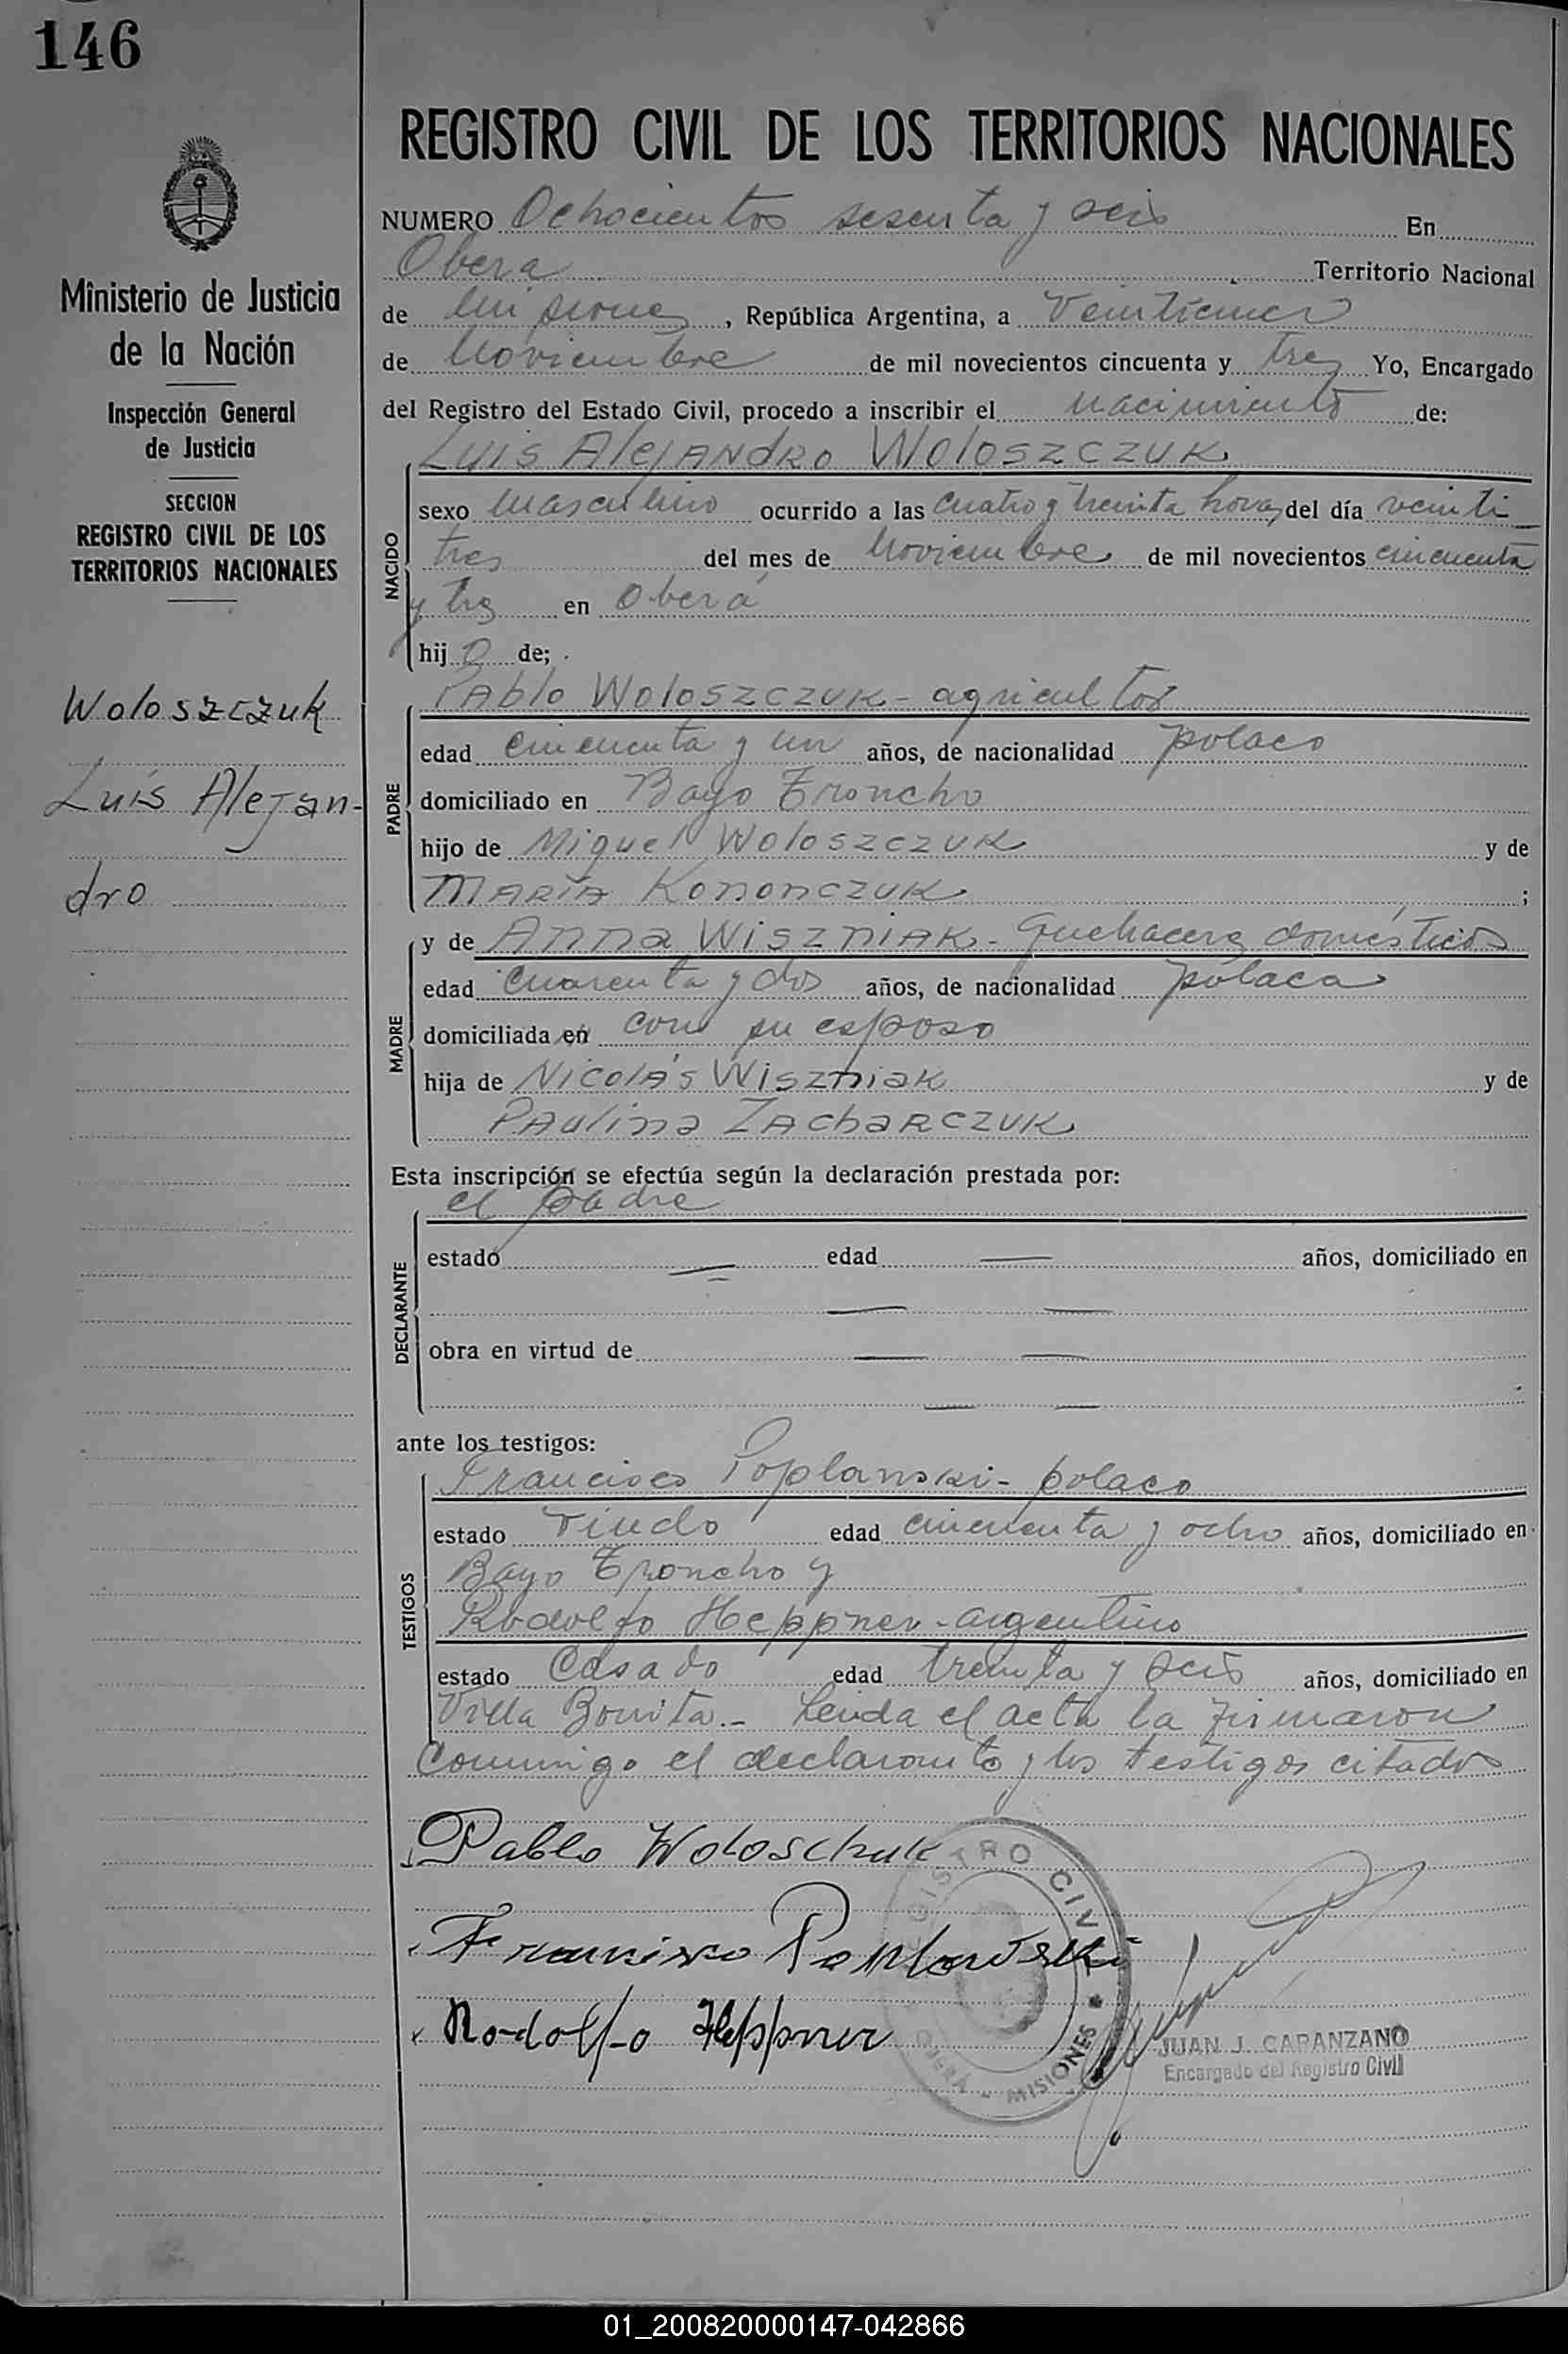 146
Ministerio de Justicia
de la Nación
Inspección General
de Justicia
SECCION
REGISTRO CIVIL DE LOS
TERRITORIOS NACIONALES
Woloszczuk
Luis Alejan-
dro
REGISTRO CIVIL DE LOS TERRITORIOS NACIONALES
NUMERO Ochocientos sesenta y seis En
Oberá Territorio Nacional
de Misiones, República Argentina, a Veinticinco
de Noviembre de mil novecientos cincuenta y tres Yo, Encargado
del Registro del Estado Civil, procedo a inscribir el nacimiento de:
Luis Alejandro Woloszczuk
NACIDO
sexo Masculino ocurrido a las cuatro y treinta horas del día veinti
tres del mes de Noviembre de mil novecientos cincuenta
y tres en Oberá
hijo de;
Pablo Woloszczuk - agricultor
PADRE
edad cincuenta y un años, de nacionalidad polaco
domiciliado en Bayo Troncho
hijo de Miguel Woloszczuk y de
María Kononczuk ;
y de Anna Wiszniak - quehaceres domésticos
MADRE
edad cuarenta y dos años, de nacionalidad polaca
domiciliada en con su esposo
hija de Nicolás Wiszniak y de
Paulina Zacharczuk
Esta inscripción se efectúa según la declaración prestada por:
el padre
DECLARANTE
estado — edad — años, domiciliado en
— —
obra en virtud de — —
— —
ante los testigos:
Francisco Poplanski - polaco
TESTIGOS
estado viudo edad cincuenta y ocho años, domiciliado en
Bayo Troncho y
Rodolfo Heppner - argentino
estado Casado edad treinta y seis años, domiciliado en
Villa Bonita.- Leída el acta la firmaron
conmigo el declarante y los testigos citados
Pablo Woloschuk
Francisco
Rodolfo Heppner
REGISTRO CIVIL
OBERÁ - MISIONES
JUAN J. CARANZANO
Encargado del Registro Civil
01_200820000147-042866